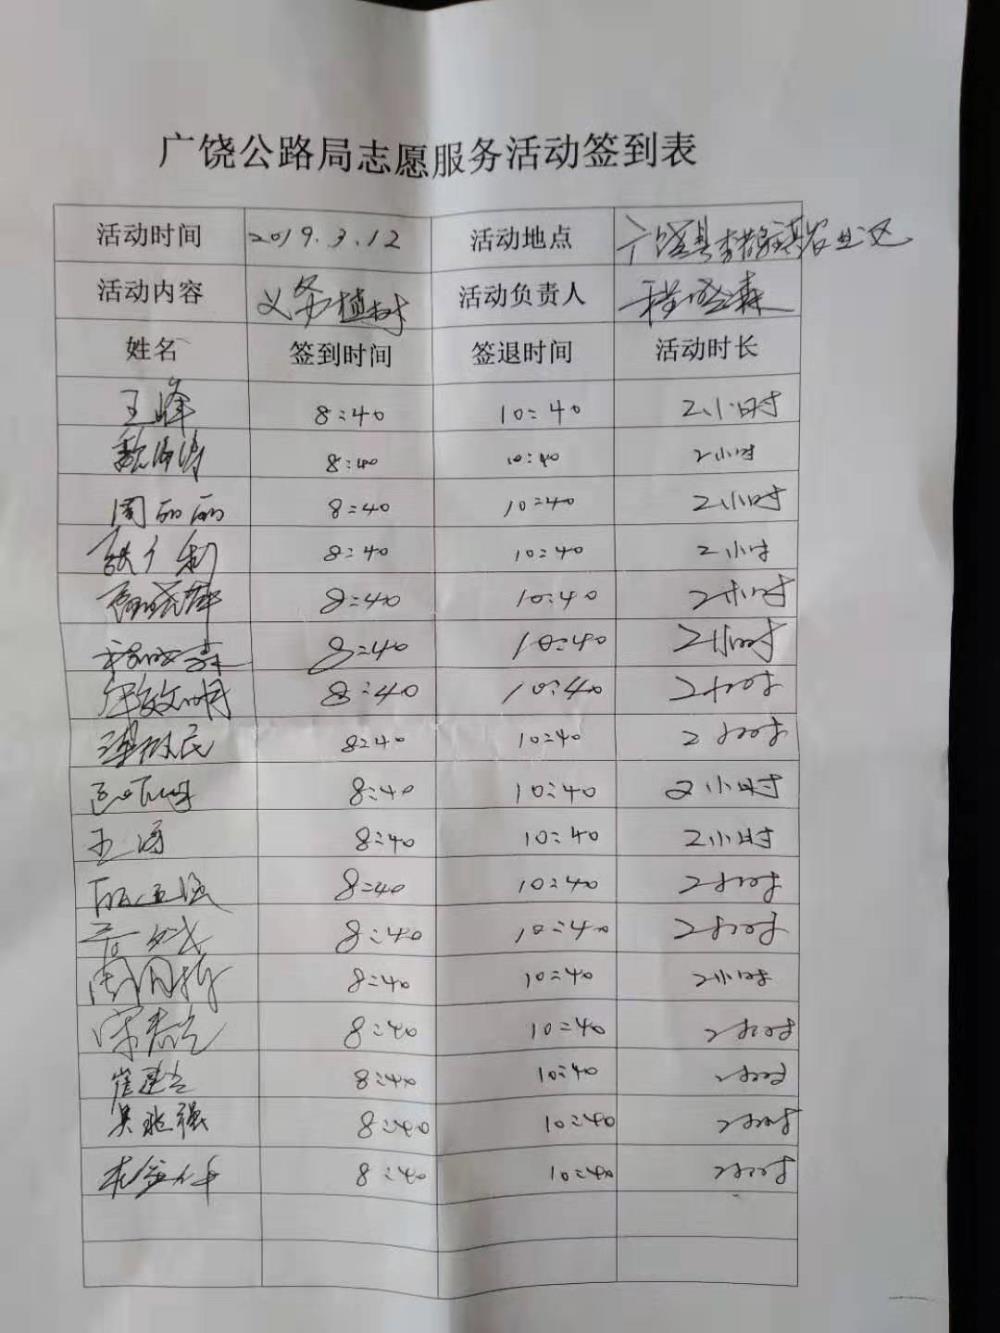 广饶公路局志愿服务活动签到表
活动时间 2019.3.12 活动地点 广饶县李鹊
活动内容 义务植树 活动负责人 森
姓名 签到时间 签退时间 活动时长
王峰 8:40 10:40 2小时
魏海涛 8:40 10:40 2小时
周丽丽 8:40 10:40 2小时
8:40 10:40 2小时
8:40 10:40 2小时
森 8:40 10:40 2小时
明 8:40 10:40 2小时
民 8:40 10:40 2小时
8:40 10:40 2小时
王涛 8:40 10:40 2小时
8:40 10:40 2小时
8:40 10:40 2小时
周 8:40 10:40 2小时
宋 8:40 10:40 2小时
崔建 8:40 10:40 2小时
吴 强 8:40 10:40 2小时
8:40 10:40 2小时